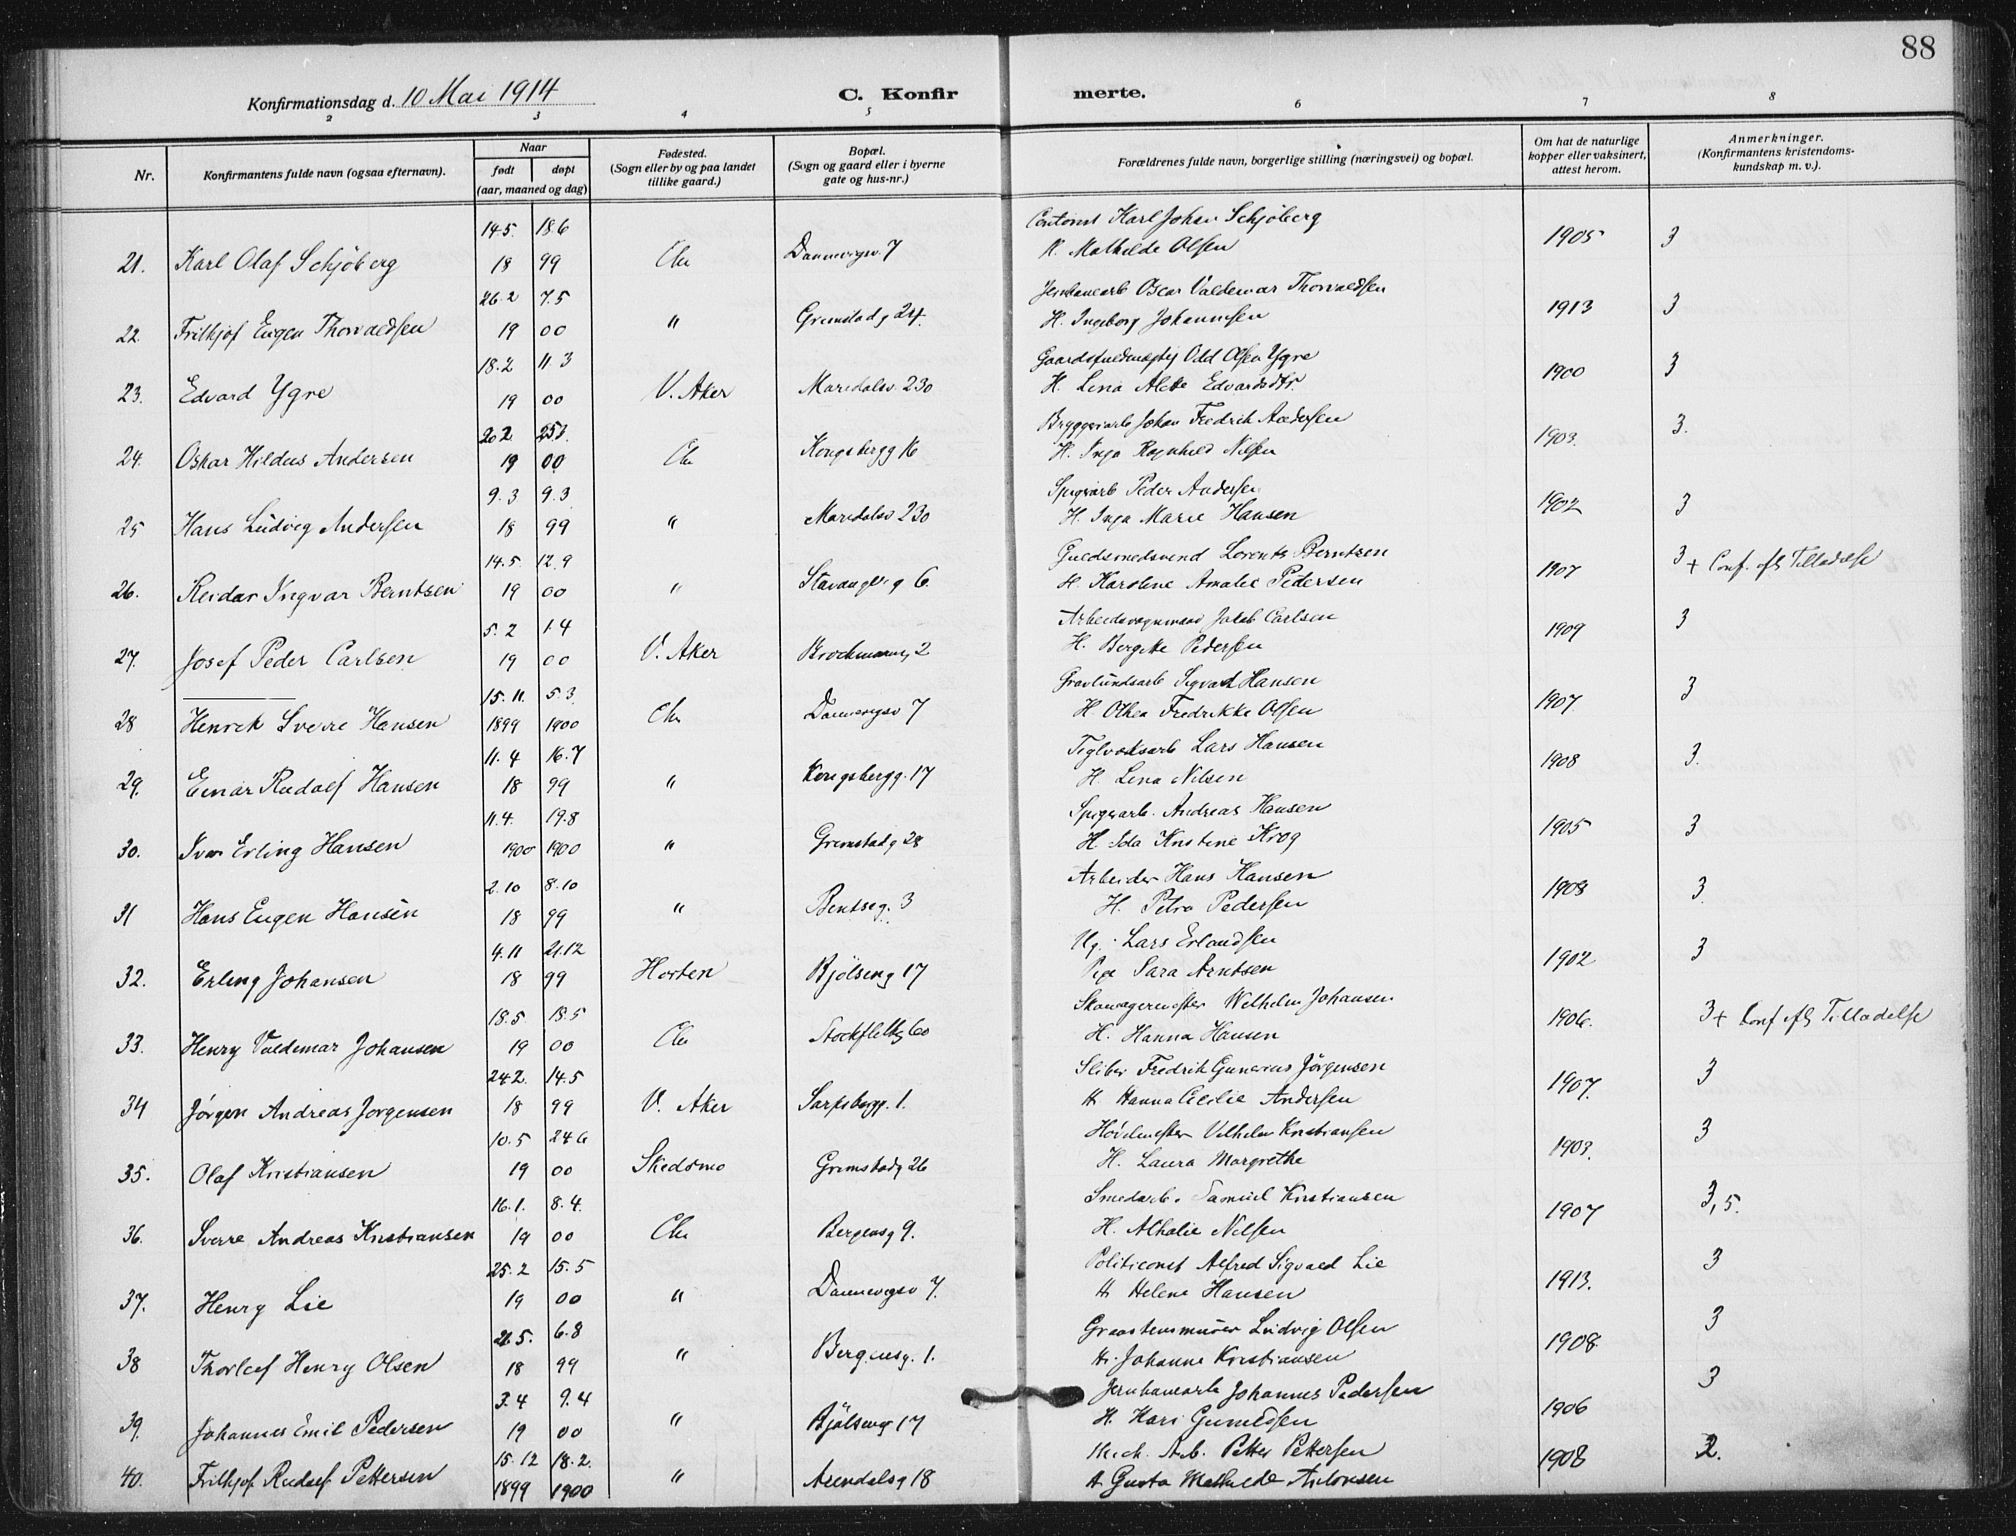 88
Konfirmationsdag d. 10 Mai 1914 C. Konfir merte.
2 3 4 5 6 7 8
Nr. Konfirmantens fulde navn (ogsaa efternavn). Naar født døpt (aar, maaned og dag) Fødested. (Sogn eller by og paa landet tillike gaard.) Bopæl. (Sogn og gaard eller i byerne gate og hus-nr.) Forældrenes fulde navn, borgerlige stilling (næringsvei) og bopæl. Om hat de naturlige kopper eller vaksinert, attest herom. Anmerkninger. (Konfirmantens kristendomskundskap m. v.).
14.5. 18.6 Karl Johan Schjøberg
21. Karl Olaf Schjøberg 18 99 Chr Dannevigsv. 7 H. Mathilde Olsen 1905 3
26.2 7.5 Jernbanearb Oscar Valdemar Thorvaldsen
22. Frithjof Eugen Thorvaldsen 19 00 " Grimstadg 24. H. Ingeborg Johannesen 1913 3
18.2 11.3 Odd Olsen Ygre
23. Edvard Ygre 19 00 V. Aker Maridalsv 230 H. Lina Alette Edvardsdtr. 1900 3
20.2 Bryggeriarb Johan Fredrik Andersen
24. Oskar Hildus Andersen 19 00 Chr Kongsbergg 16 H. Inga Ragnhild Nilsen 1903. 3.
9.3 9.3 Spigerarb Peder Andersen
25 Hans Ludvig Andersen 18 99 " Maridalsv 230 H. Inga Marie Hansen 1902 3
14.5. 12.9 Guldsmedsvend Lorentz Berntzen
26. Reidar Ingvar Berntsen 19 00 " Stavangerg 6. H. Karoline Amalie Pedersen 1907 3 + Conf. eft Tilladelse
5.2 1.4 Arbeidsvognmand Jakob Carlsen
27. Josef Peder Carlsen 19 00 V. Aker Brochmanng 2 H. Bergitte Pedersen 1909 3
15.11. 5.3 Gravlundsarb Sigvart Hansen
28 Henrik Sverre Hansen 1899 1900 Chr Dannevigsv 7 H. Othea Fredrikke Olsen 1907 3
11.4 16.7 Teglverksarb Lars Hansen
29. Einar Rudolf Hansen 18 99 " Kongsbergg. 17 H. Lina Nilsen 1908 3.
11.4. 19.8 Spigerarb. Andreas Hansen
30. Ivar Erling Hansen 1900 1900 " Grimstadg 28 H. Ida Kristine Krog 1905 3
2.10 8.10 Arbeider Hans Hansen
31 Hans Eugen Hansen 18 99 " Bentseg. 3 H. Petra Pedersen 1908 3.
4.11 21.12 Ug. Lars Erlandsen
32. Erling Johansen 18 99 Horten Bjölseng 17 Pige Sara Arntsen 1902 3
18.5 18.5 Skomagermester Wilhelm Johansen
33. Henry Valdemar Johansen 19 00 Chr Stockflethg 60 H. Hanna Hansen 1906. 3 + Conf eft Tilladelse
24.2. 14.5 Sliber Fredrik Gunerius Jörgensen
34 Jörgen Andreas Jorgensen 18 99 V. Aker Sarpsborgg. 1. H. Hanna Cecilie Andersen 1907. 3
10.5 24.6 Vilhelm Kristiansen
35. Olaf Kristiansen 19 00 Skedsmo Grimstadg 26 H. Laura Margrethe 1903. 3
16.1. 8.4. Smedarb. Samuel Kristiansen
36. Sverre Andreas Kristiansen 19 00 Chr Bergensg 9. H. Athalie Nilsen 1907 3,5.
25.2 15.5 Politiconst Alfred Sigvald Lie
37. Henry Lie 19 00 " Dannevigsv 7. H Helene Hansen 1913. 3
21.5. 6.8 Graastensmurer Ludvig Olsen
38 Thorleif Henry Olsen 18 99 " Bergensg. 1. H. Johanne Kristiansen 1908. 3
3.4 9.4 Jernbanearb Johannes Pedersen
39. Johannes Emil Pedersen 19 00 " Bjölseng 17 H. Kari 1906 3
15.12 18.2. Mek. Arb. Petter Pettersen
40. Frithjof Rudolf Pettersen 1899 1900 " Arendalsg 18 H Gusta Mathilde Antonsen 1908 2.